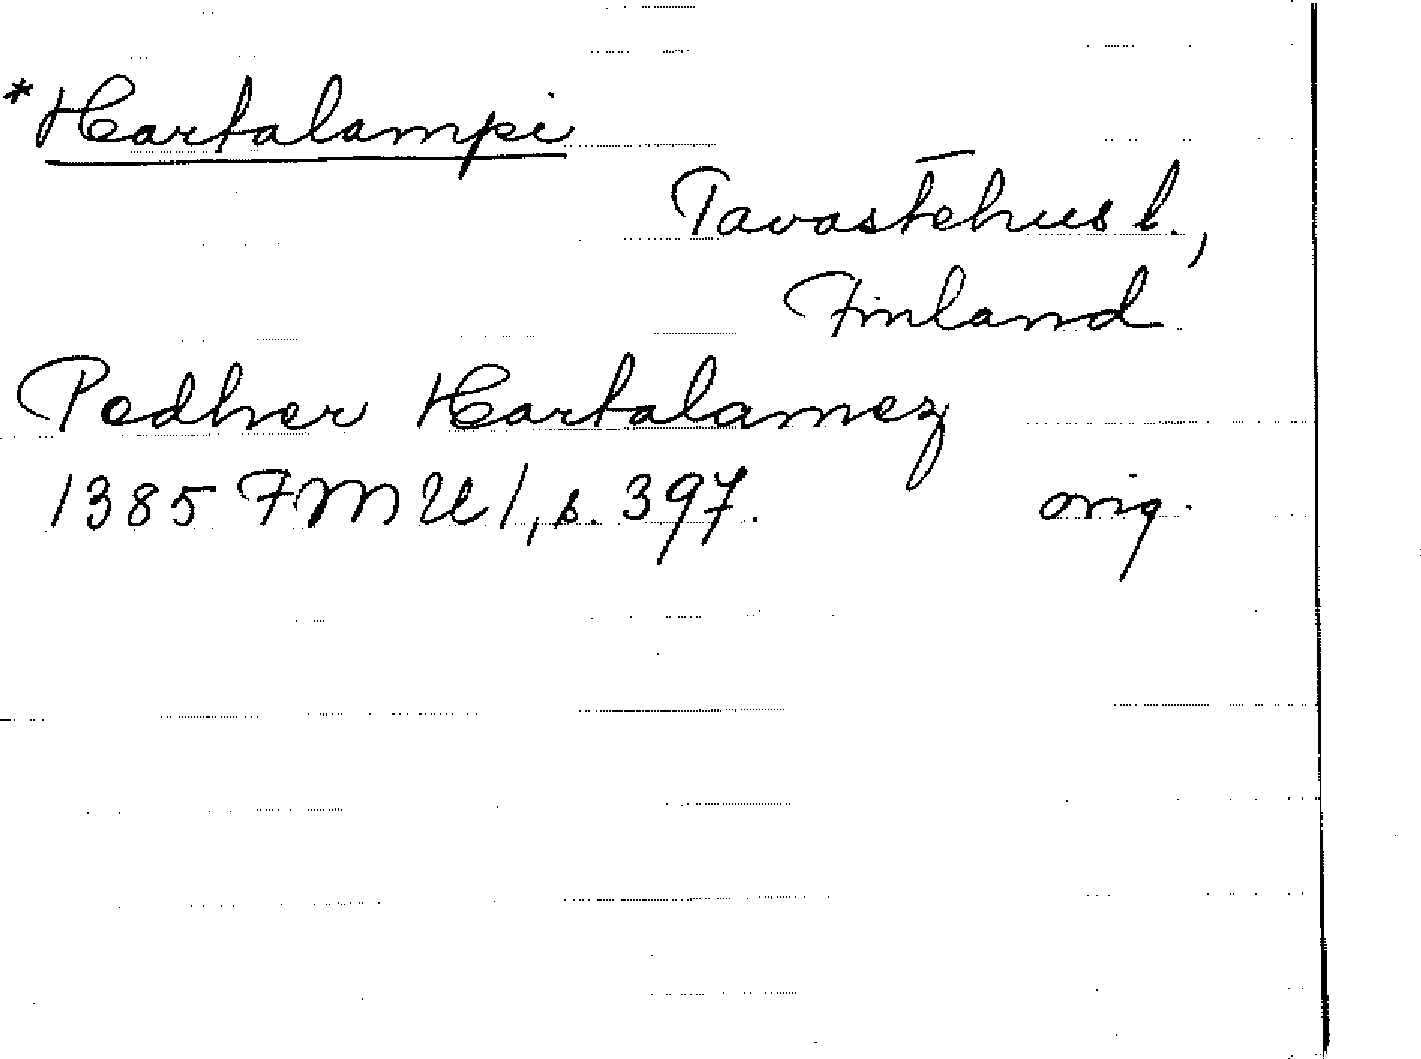 *Hartalampi
Tavastehus l.,
Finland
Pedher Hartalamez
1385 FMU 1, s. 397. orig.